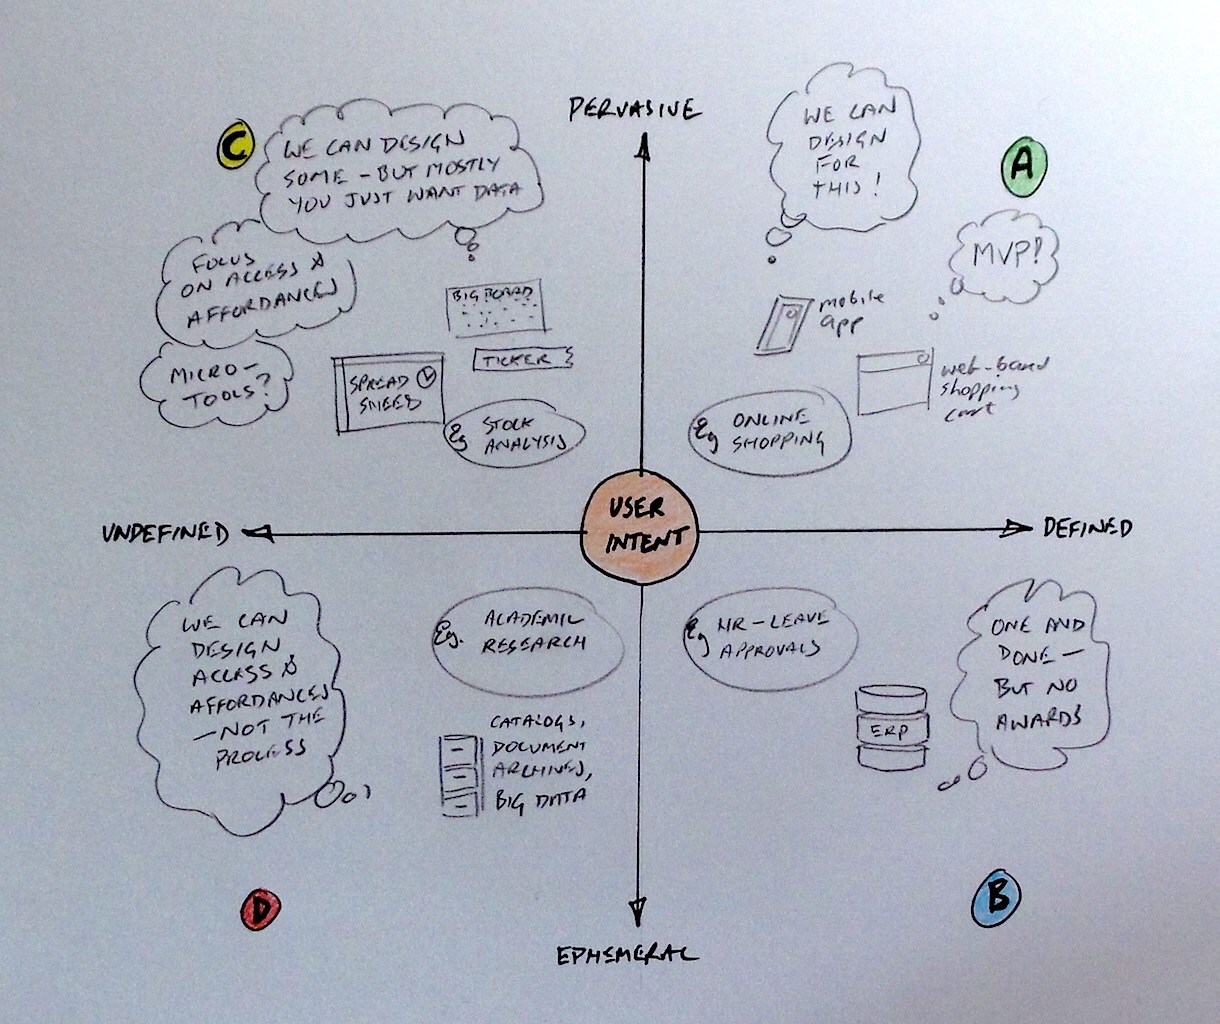 PERVASIVE
C
WE CAN DESIGN
SOME - BUT MOSTLY
YOU JUST WANT DATA
FOCUS
ON ACCESS &
AFFORDANCES
MICRO-
TOOLS?
BIG BOARD
TICKER
SPREAD
SHEED
Eg
STOCK
ANALYSIS
WE CAN
DESIGN
FOR
THIS!
A
MVP!
mobile
app
web-based
shopping
cart
Eg
ONLINE
SHOPPING
UNDEFINED
USER
INTENT
DEFINED
WE CAN
DESIGN
ACCESS &
AFFORDANCES
- NOT THE
PROCESS
Eg.
ACADEMIC
RESEARCH
CATALOGS,
DOCUMENT
ARCHIVES,
BIG DATA
D
Eg
HR - LEAVE
APPROVALS
ERP
ONE AND
DONE -
BUT NO
AWARDS
B
EPHEMERAL